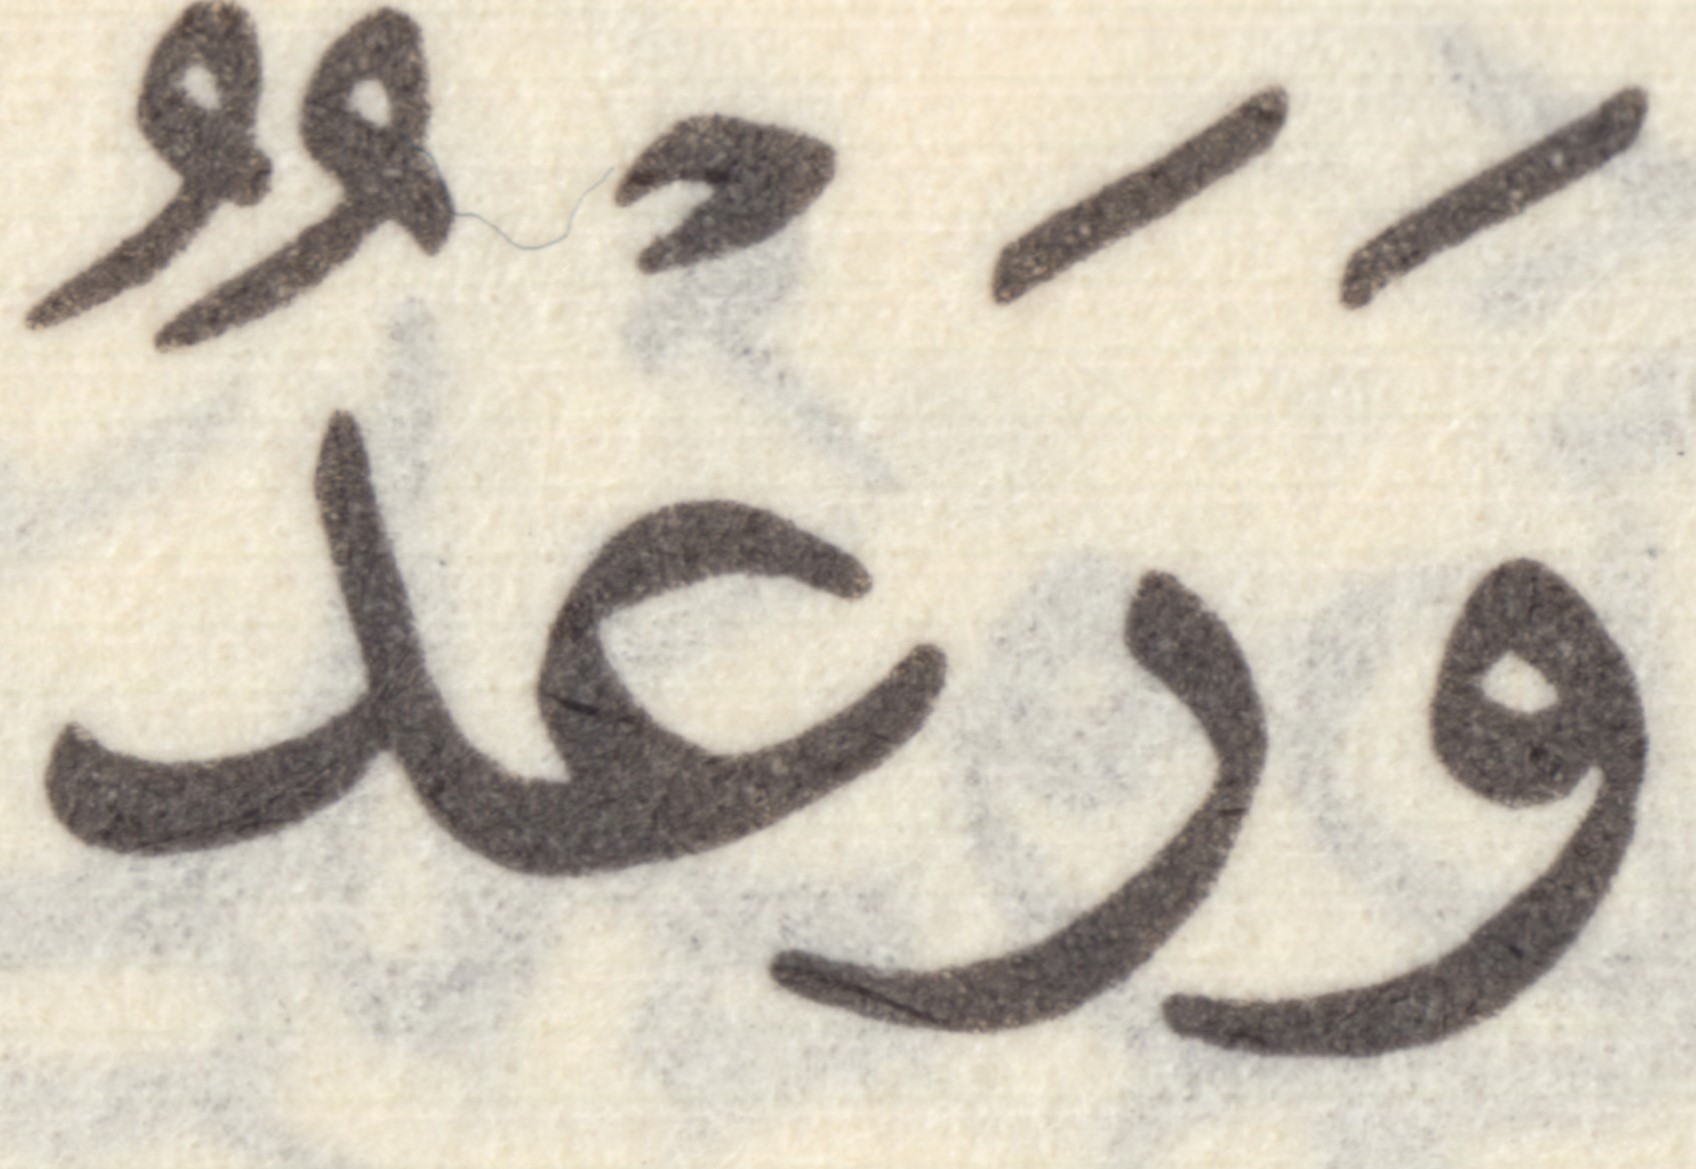 وَرَعْدٌ